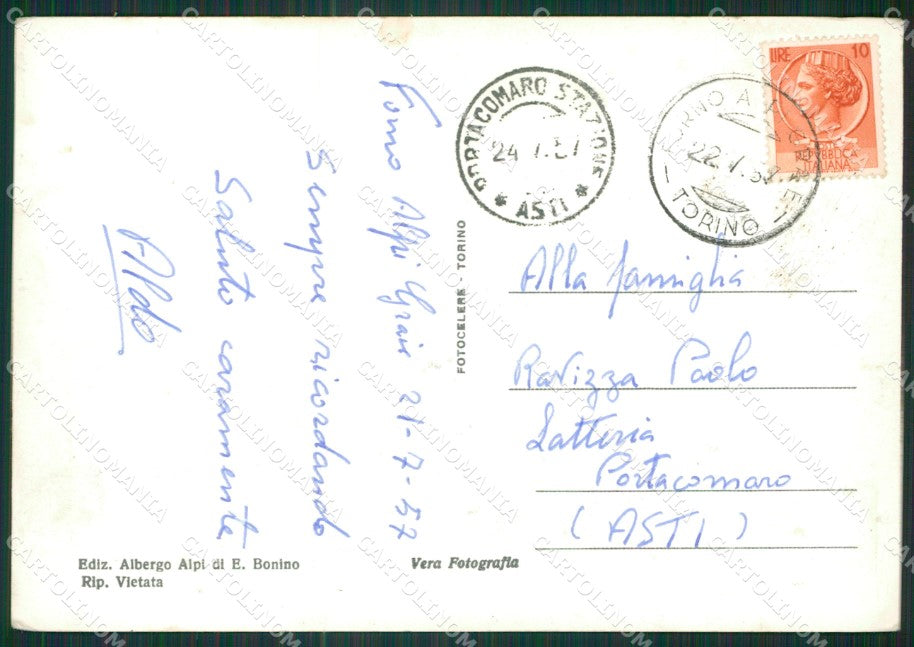 Forno Alpi Graie 21-7-57
Sempre ricordando
Saluto caramente
Aldo
Ediz. Albergo Alpi di E. Bonino
Rip. Vietata
Vera Fotografia
FOTOCELERE - TORINO
PORTACOMARO STAZIONE
24.7.57
* ASTI *
22.7.57
TORINO
LIRE 10
REPVBBLICA
ITALIANA
Alla famiglia
Ravizza Paolo
Latteria
Portacomaro
(ASTI)
CARTOLINOMANIA